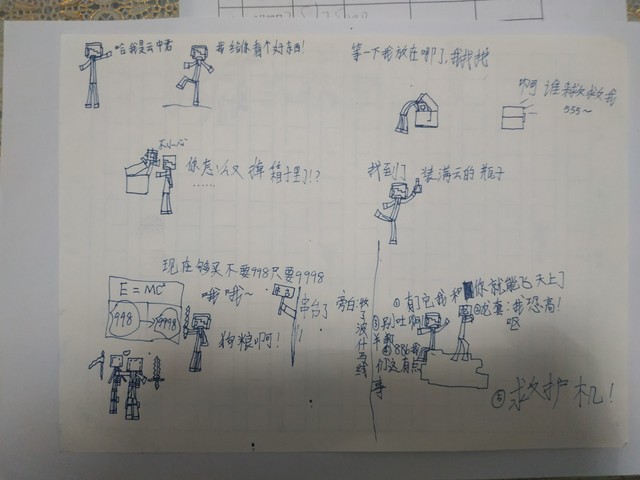 哈我是云中君
我给你看个好东西!
等一下我放在哪了,我找找
啊 谁来救救我
555~
不小心
你怎么又掉箱子里了!?
……
找到了 装满云的瓶子
现在购买不要998只要9998
E = MC²
998 → 9998
哦哦~
狗粮啊!
串台了
旁白:
①有了它我和你就能飞天上了
②龙套:我恐高!
呕
③别吐啊
⑤救护机!